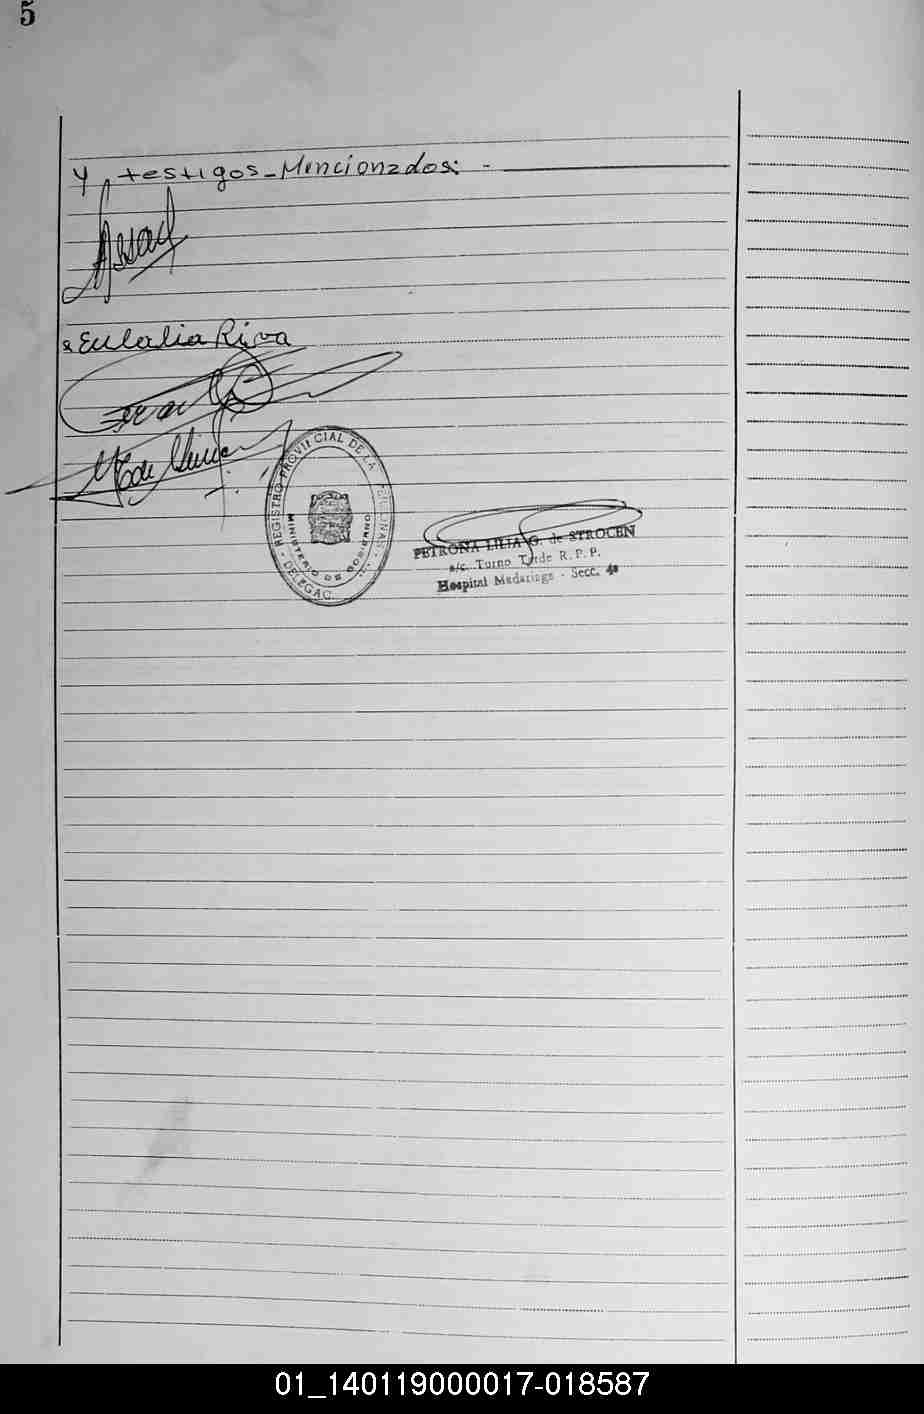 5
y testigos-Mencionados: -
Eulalia Riva
REGISTRO PROVINCIAL DE LA PERSONAS
MINISTERIO DE GOBIERNO
DELEGAC.
PETRONA LILIA G. de STROCEN
a/c. Turno Tarde R. P. P.
Hospital Madariaga - Secc. 4a
01_140119000017-018587